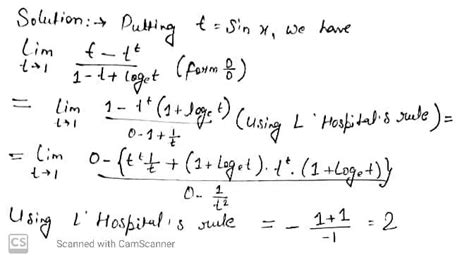 Solution:→ Putting t = Sin x, we have
Lim t→1 (t - t^t)/(1 - t + loge t) (form 0/0)
= lim t→1 (1 - t^t (1 + loge t))/(0 - 1 + 1/t) (using L'Hospital's rule) =
= lim t→1 (0 - {t^t 1/t + (1 + loge t). t^t. (1 + loge t)})/(0 - 1/t^2)
Using L'Hospital's rule = - (1+1)/(-1) = 2
CS Scanned with CamScanner